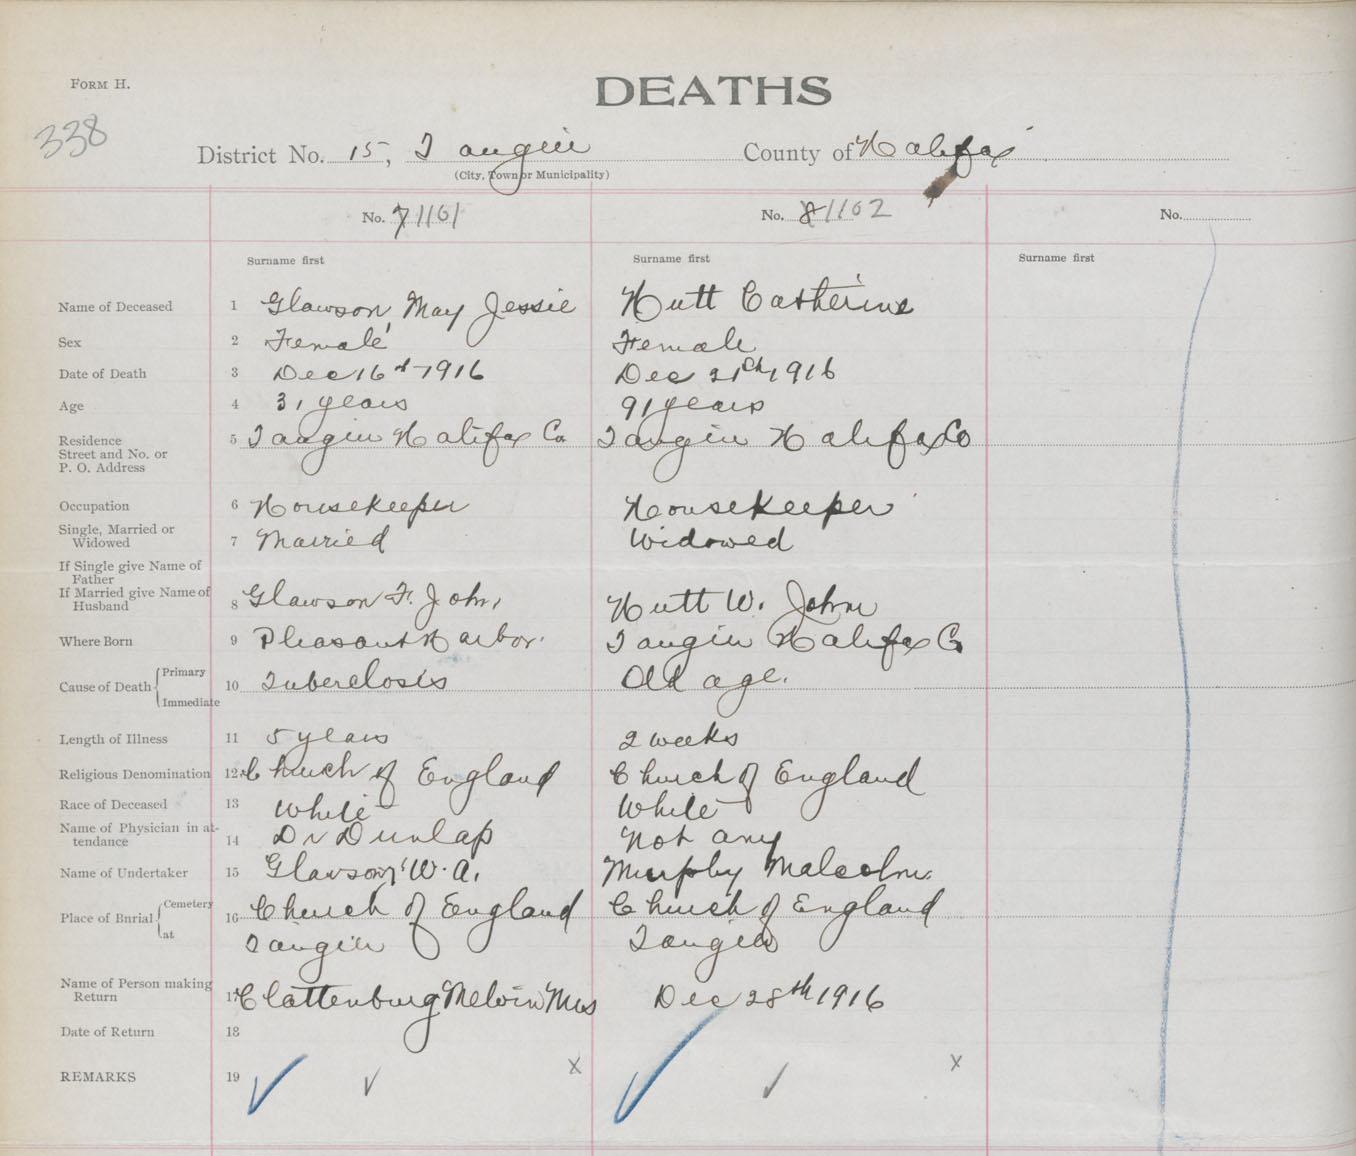 FORM H.
DEATHS
338
District No. 15, Tangier County of Halifax
(City, Town or Municipality)
No. 7 1101 No. 8 1102 No.
Surname first Surname first Surname first
Name of Deceased 1 Glawson, May Jessie Hutt Catherine
Sex 2 Female Female
Date of Death 3 Dec 16th 1916 Dec 21th 1916
Age 4 31 years 91 years
Residence 5 Tangier Halifax Co Tangier Halifax Co
Street and No. or
P. O. Address
Occupation 6 Housekeeper Housekeeper
Single, Married or
Widowed 7 Married Widowed
If Single give Name of
Father
If Married give Name of
Husband 8 Glawson F. John, Hutt W. John
Where Born 9 Pleasant Harbor. Tangier Halifax Co
Primary
Cause of Death 10 Tuberclosis Old age.
Immediate
Length of Illness 11 5 years 2 weeks
Religious Denomination 12 Church of England Church of England
Race of Deceased 13 White White
Name of Physician in at-
tendance 14 Dr Dunlap Not any
Name of Undertaker 15 Glawson W. A. Murphy Malcolm.
Cemetery
Place of Burial 16 Church of England Church of England
at Tangier Tangier
Name of Person making
Return 17 Clattenburg Melvin Mrs Dec 28th 1916
Date of Return 18
REMARKS 19